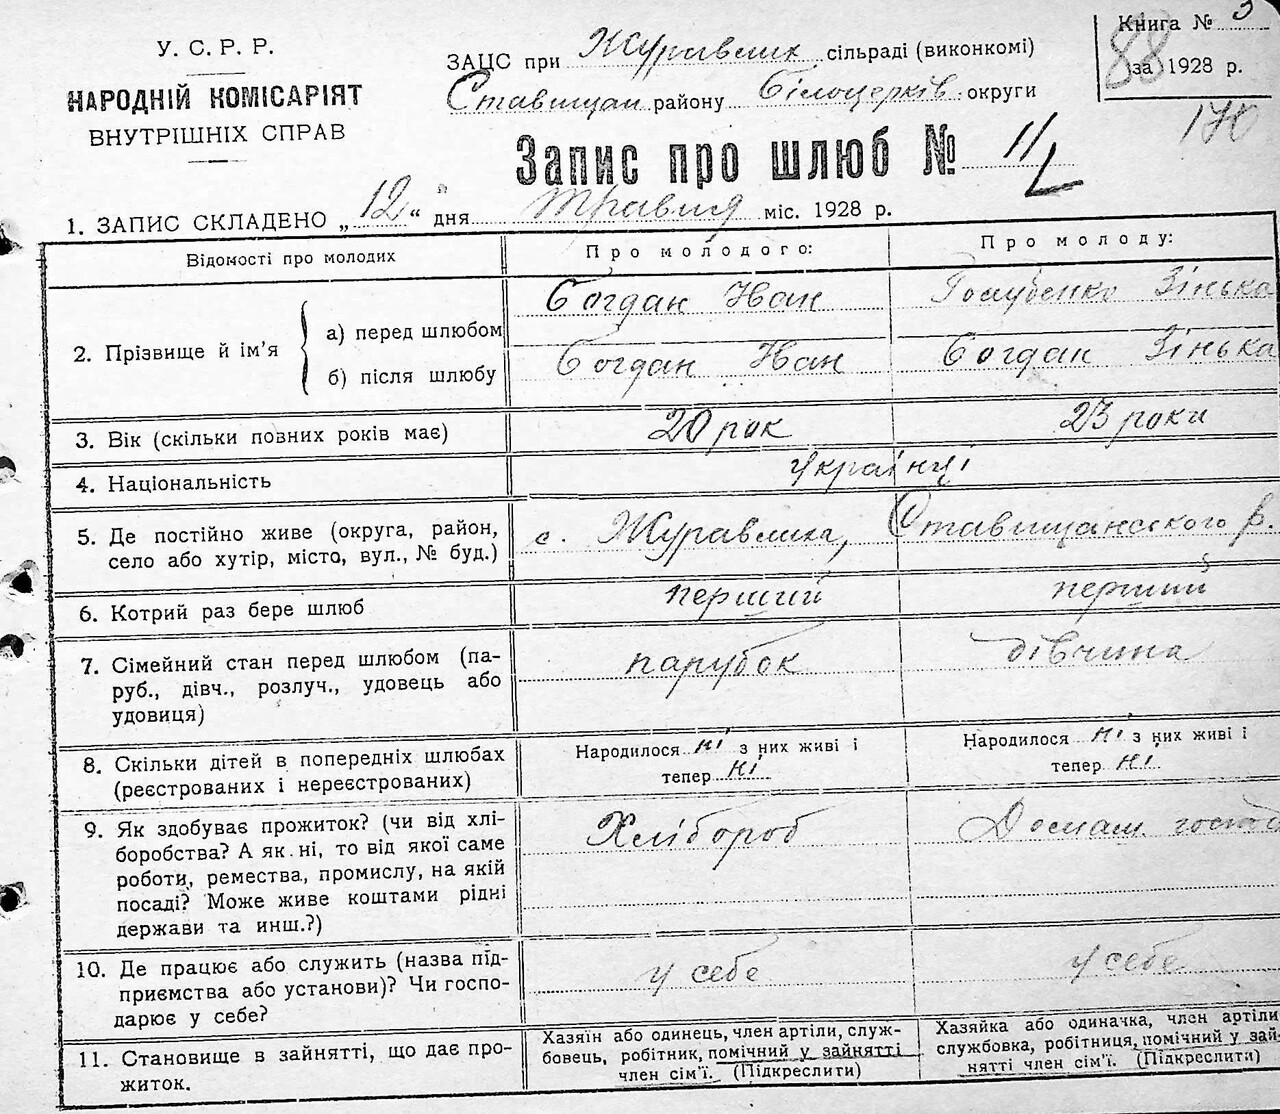 У. С. Р. Р.
НАРОДНІЙ КОМІСАРІЯТ
ВНУТРІШНІХ СПРАВ
ЗАЦС при Журавлик сільраді (виконкомі)
Ставищан району Білоцерків. округи
Книга № 3
за 1928 р.
88
170
Запис про шлюб № 11
1. ЗАПИС СКЛАДЕНО „12“ дня травня міс. 1928 р.
Відомості про молодих
Про молодого:
Про молоду:
2. Прізвище й ім'я
а) перед шлюбом
Богдан Іван
Голубенко Зінька
б) після шлюбу
Богдан Іван
Богдан Зінька
3. Вік (скільки повних років має)
20 рок
23 роки
4. Національність
Українці
5. Де постійно живе (округа, район,
село або хутір, місто, вул., № буд.)
с. Журавлиха, Ставищанського р.
6. Котрий раз бере шлюб
перший
перший
7. Сімейний стан перед шлюбом (па-
руб., дівч., розлуч., удовець або
удовиця)
парубок
дівчина
8. Скільки дітей в попередніх шлюбах
(реєстрованих і нереєстрованих)
Народилося ні з них живі і
тепер ні
Народилося ні з них живі і
тепер ні
9. Як здобуває прожиток? (чи від хлі-
боробства? А як ні, то від якої саме
роботи, ремества, промислу, на якій
посаді? Може живе коштами рідні
держави та инш.?)
Хлібороб
Домаш. господ
10. Де працює або служить (назва під-
приємства або установи)? Чи госпо-
дарює у себе?
у себе
у себе
11. Становище в зайнятті, що дає про-
житок.
Хазяїн або одинець, член артіли, служ-
бовець, робітник, помічний у зайнятті
член сім'ї. (Підкреслити)
Хазяйка або одиначка, член артіли
службовка, робітниця, помічний у зай-
нятті член сім'ї. (Підкреслити)